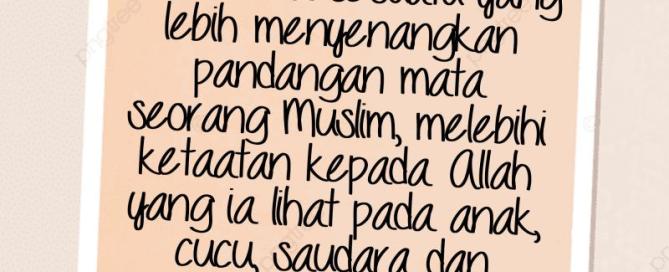 yang
lebih menyenangkan
pandangan mata
seorang Muslim, melebihi
ketaatan kepada Allah
yang ia lihat pada anak,
cucu, saudara dan